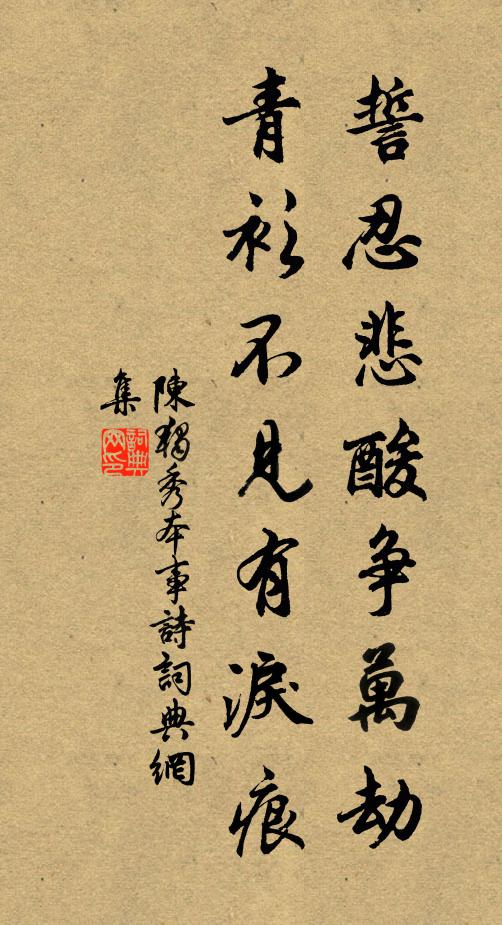 誓忍悲酸争萬劫
青衫不見有淚痕
陳獨秀本事詩詞典網
集
詞典網印